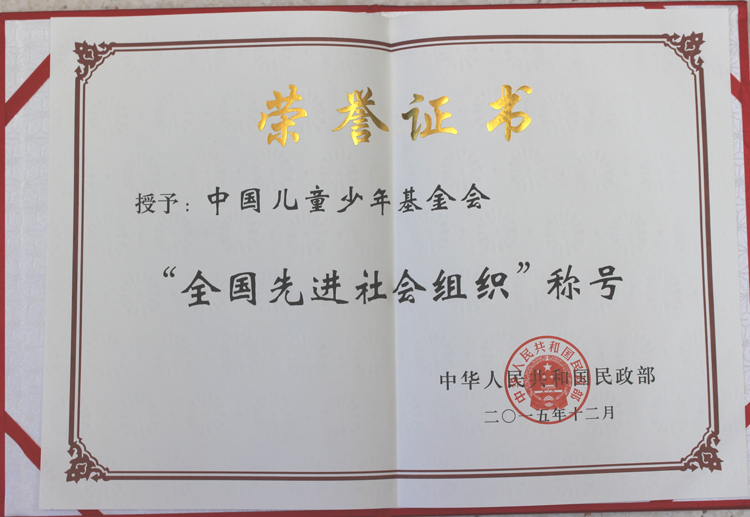 荣誉证书
授予：中国儿童少年基金会
“全国先进社会组织”称号
中华人民共和国民政部
中华人民共和国民政部
二〇一五年十二月